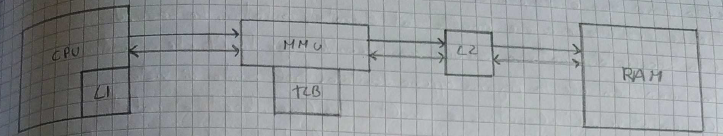 CPU
L1
MMU
TLB
L2
RAM